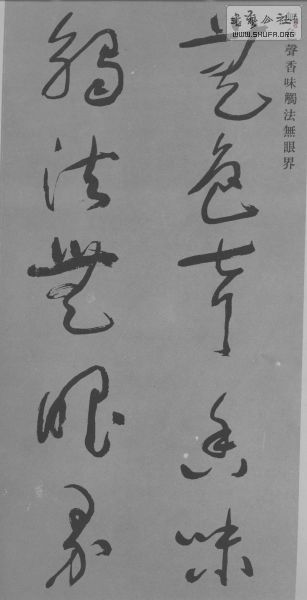 聲香味觸法無眼界
無色聲香味
觸法無眼界
WWW.SHUFA.ORG